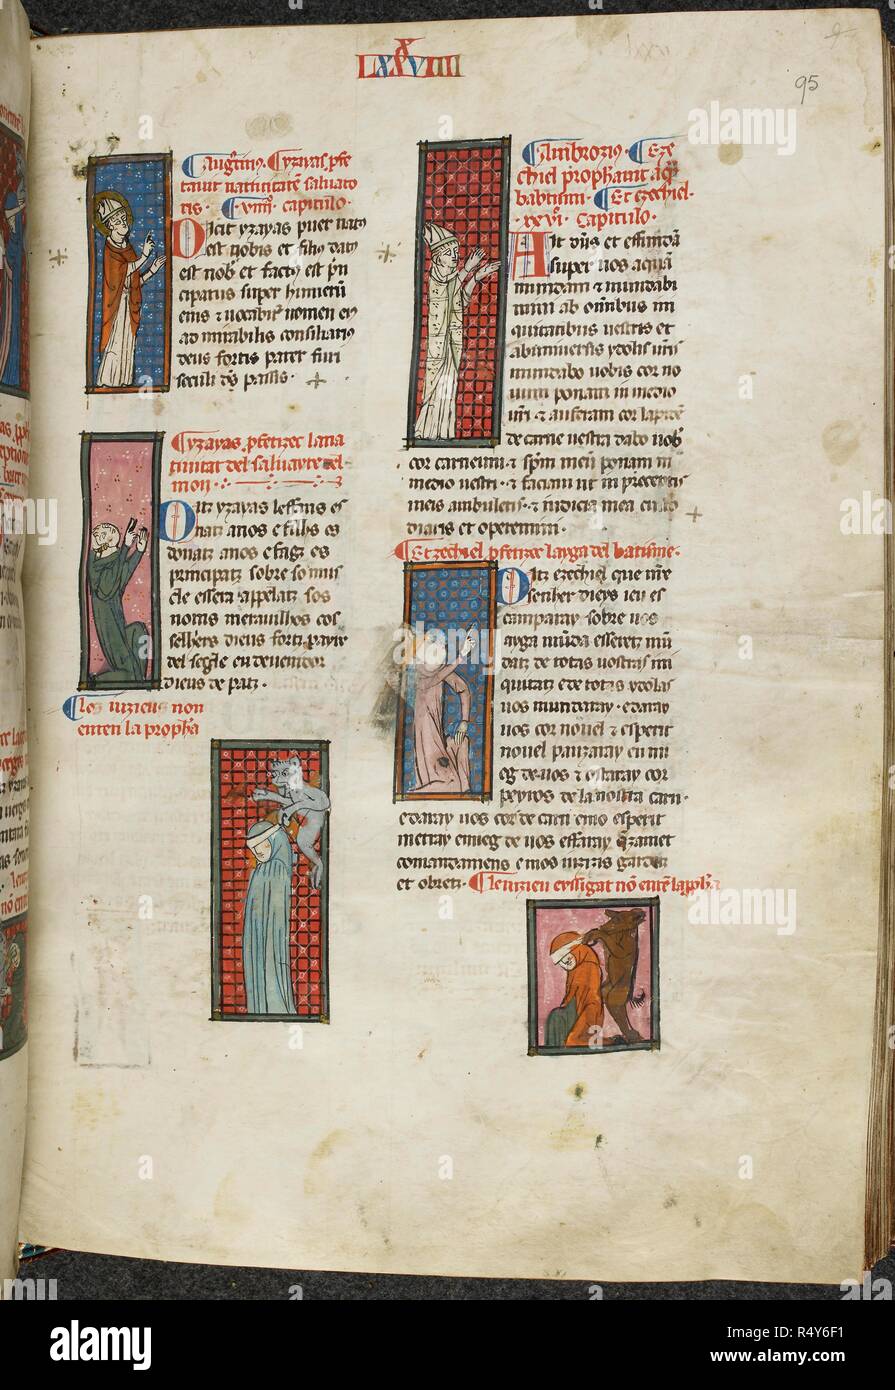 LXXXVIIII
95
¶Augustin9. Cyzayas, pfe
tauit natiuitatē saluato
ris. ¶ VIIII. capitulo.
Dicit yzayas puer nat9
est nobis et fili9 dat9
est nob et fact9 est p̄n
cipatus super humerū
eius & uocabit nomen ei9
admirabilis consiliari9
deus fortis pater futi
seculi p̄s passis.
Cyzayas, pfetizec lana
tiuitat del saluayre del
mon.
Ditz yzayas lesfans es
natz a nos e filhs es
donatz a nos e fagz es
principatz sobre so mus
cle e sera appelatz sos
noms meravilhos cos
selhers dieus fortz payre
del segle endevenidor
dieus de patz.
¶los iuzieus non
enten la propha
¶Ambrozi9. ¶Eze
chiel prophauit aq̄
babtismi. ¶Et ezechiel.
xxvi. capitulo.
Ait dn̄s et effundā
super uos aquā
mundam & mundabi
mini ab omnibus in
quitatibus uestris et
ab uniuersis ydolis ur̄is
mundabo uobis cor no
uum ponam in medio
ur̄i & auferam cor lapide
de carne uestra dabo uob
cor carneum. & sp̄m meū ponam in
medio uestri. & faciam ut in preceptis
meis ambuletis. & iudicia mea custo
diatis et operemini.
¶Ezechiel, pfetizec layga del batisme.
Ditz ezechiel que nr̄e
senher dieus ieu es
camparay sobre uos
ayga mūda e seretz mū
datz de totas uostras in
iquitatz e de totas ydolas
uos mundaray. e daray
uos cor nouel & esperit
nouel pauzaray en mi
eg de uos & ostaray cor
peyros de la nostra carn.
e daray uos cor de carn e mo esperit
metray e mieg de uos e faray q̄z a met
comandamens e mos iuzizis gardar
et obretz. ¶Le iuzieu ensigat nō entē la ppha
alamy
Image ID: R4Y6F1
www.alamy.com